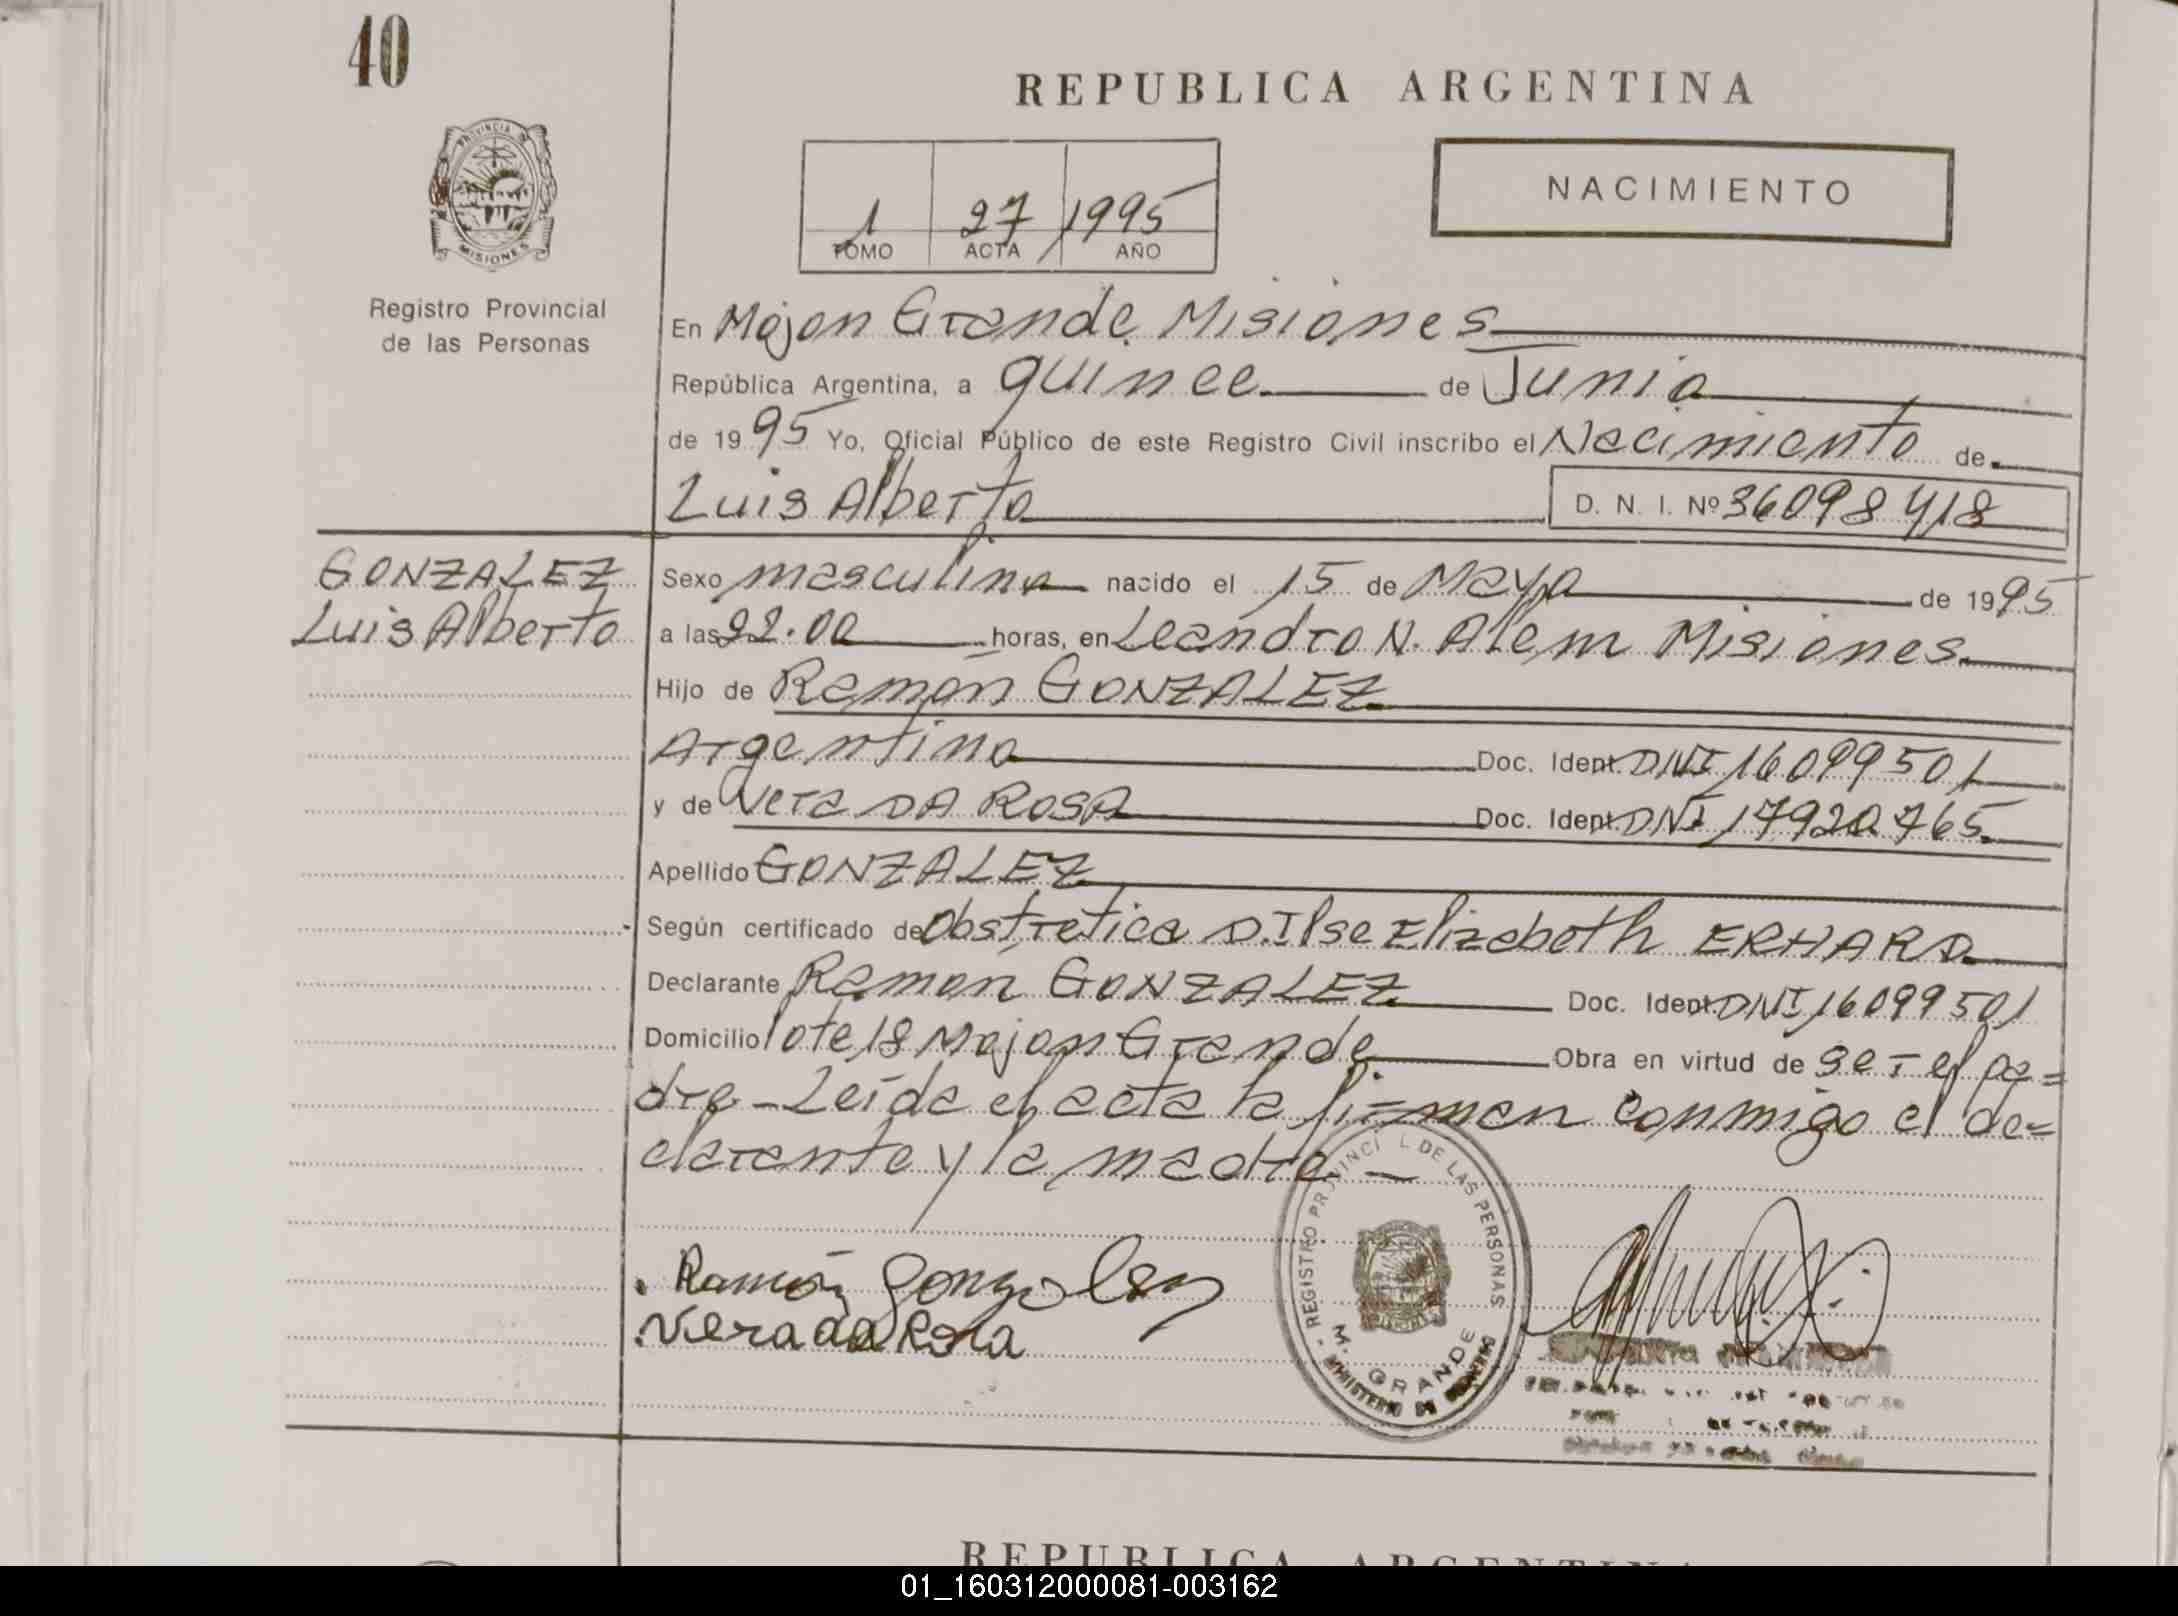 40
REPUBLICA ARGENTINA
PROVINCIA DE
MISIONES
1 27 1995
TOMO ACTA AÑO
NACIMIENTO
Registro Provincial
de las Personas
En Mojon Grande Misiones
República Argentina, a quince de Junio
de 1995 Yo, Oficial Público de este Registro Civil inscribo el Nacimiento de
Luis Alberto D. N. I. Nº 36098418
GONZALEZ
Luis Alberto
Sexo masculino nacido el 15 de Mayo de 1995
a las 22.00 horas, en Leandro N. Alem Misiones.
Hijo de Ramón GONZALEZ
Argentino Doc. Ident. DNI 16099501
y de Vera DA ROSA Doc. Ident. DNI 17920765
Apellido GONZALEZ
Según certificado de Obstretica D. Ilse Elizabeth ERHARD
Declarante Ramon GONZALEZ Doc. Ident. DNI 16099501
Domicilio lote 18 Mojon Grande Obra en virtud de ser el pa=
dre - Leída el acta la firman conmigo el de=
clarante y la madre -
REGISTRO PROVINCI L DE LAS PERSONAS
M. GRANDE
MINISTERIO DE GOBIERNO
Ramón Gonzalez
Vera da Rosa
REPUBLICA ARGENTINA
01_160312000081-003162